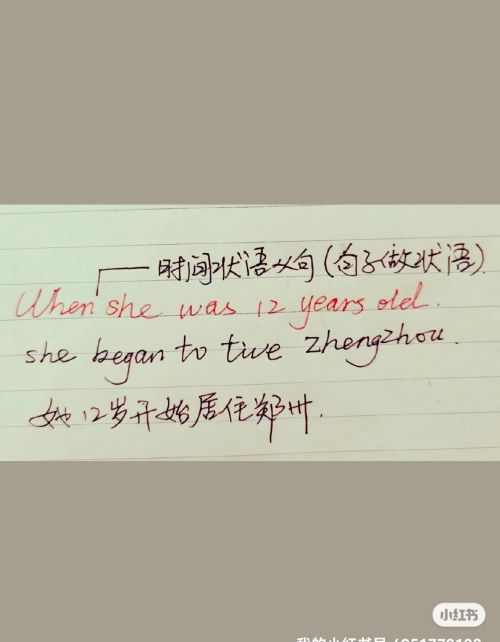 时间状语从句(句子做状语)
When she was 12 years old.
she began to live Zhengzhou.
她12岁开始居住郑州.
小红书